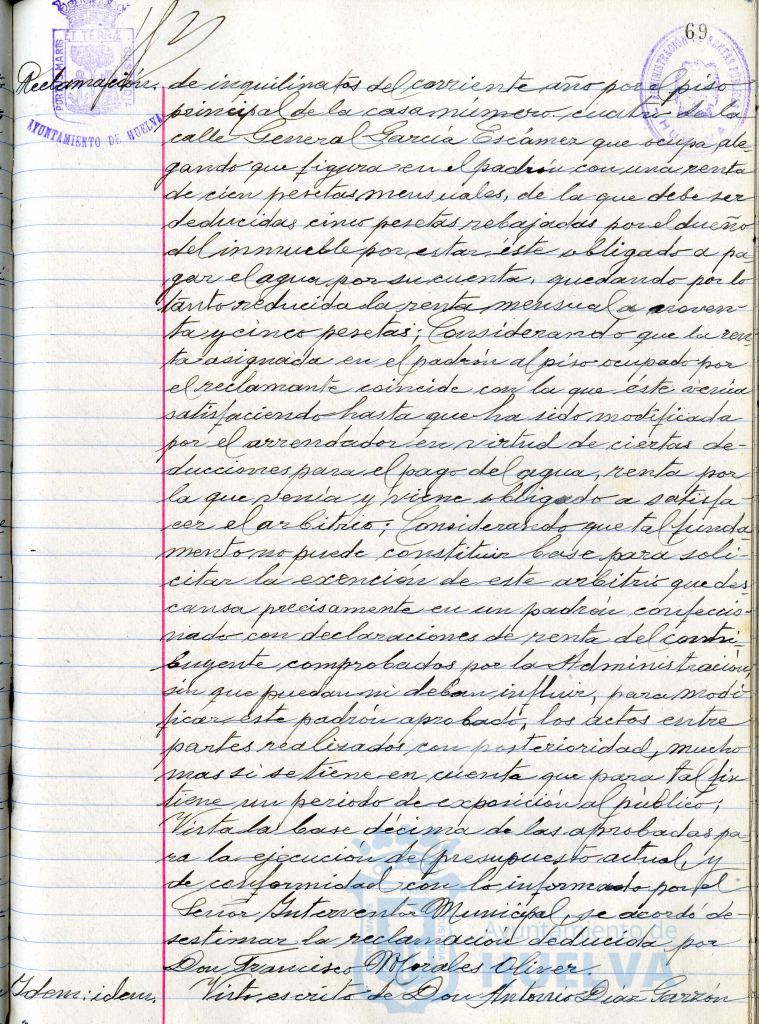 69.
PORTUS MARIS ET TERRÆ CUSTODIA
AYUNTAMIENTO DE HUELVA
HUELVA
Reclamación. de inquilinatos del corriente año por el piso
principal de la casa número cuatro de la
calle General García Escámez que ocupa ale-
gando que figura en el padrón con una renta
de cien pesetas mensuales, de la que debe ser
deducidas cinco pesetas rebajadas por el dueño
del inmueble por estar éste obligado a pa-
gar el agua por su cuenta, quedando por lo
tanto reducida la renta mensual a noven-
ta y cinco pesetas; Considerando que la ren-
ta asignada en el padrón al piso ocupado por
el reclamante coincide con la que este venía
satisfaciendo hasta que ha sido modificada
por el arrendador en virtud de ciertas de-
ducciones para el pago del agua, renta por
la que venía y viene obligado a satisfa-
cer el arbitrio; Considerando que tal funda-
mento no puede constituir base para soli-
citar la exención de este arbitrio que des-
cansa precisamente en un padrón confeccio-
nado con declaraciones de renta del contri-
buyente comprobados por la Administración,
sin que puedan ni deban influir, para modi-
ficar este padrón aprobado, los actos entre
partes realizados con posterioridad, mucho
mas si se tiene en cuenta que para tal fin
tiene un periodo de exposición al público;
Vista la base décima de las aprobadas pa-
ra la ejecución del presupuesto actual, y
de conformidad con lo informado por el
Señor Interventor Municipal, se acordó de-
sestimar la reclamación deducida por
Don Francisco Morales Oliver.
Idem: idem. Visto escrito de Don Antonio Diaz Garzón
Ayuntamiento de
HUELVA